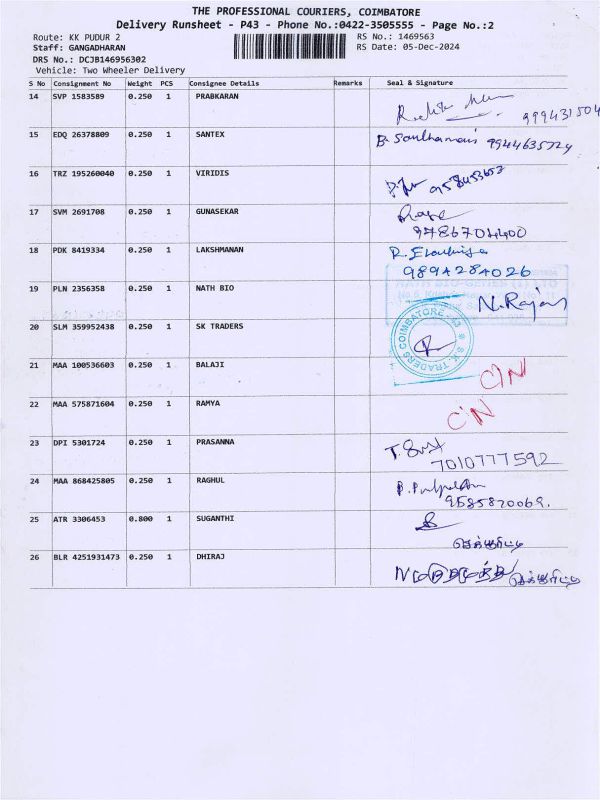 THE PROFESSIONAL COURIERS, COIMBATORE
Delivery Runsheet - P43 - Phone No.:0422-3505555 - Page No.:2
Route: KK PUDUR 2
RS No.: 1469563
Staff: GANGADHARAN
RS Date: 05-Dec-2024
DRS No.: DCJB146956302
Vehicle: Two Wheeler Delivery
S No Consignment No Weight PCS Consignee Details Remarks Seal & Signature
14 SVP 1583589 0.250 1 PRABKARAN
15 EDQ 26378809 0.250 1 SANTEX
16 TRZ 195260040 0.250 1 VIRIDIS
17 SVM 2691708 0.250 1 GUNASEKAR
9786704400
18 PDK 8419334 0.250 1 LAKSHMANAN
9894284026
19 PLN 2356358 0.250 1 NATH BIO N.Rajan
20 SLM 359952438 0.250 1 SK TRADERS
S.K. TRADERS COIMBATORE - 43
21 MAA 100536603 0.250 1 BALAJI C/N
22 MAA 575871604 0.250 1 RAMYA C/N
23 DPI 5301724 0.250 1 PRASANNA
7010777592
24 MAA 868425805 0.250 1 RAGHUL
9585820069.
25 ATR 3306453 0.800 1 SUGANTHI
செக்யூரிட்டி
26 BLR 4251931473 0.250 1 DHIRAJ செக்யூரிட்டி